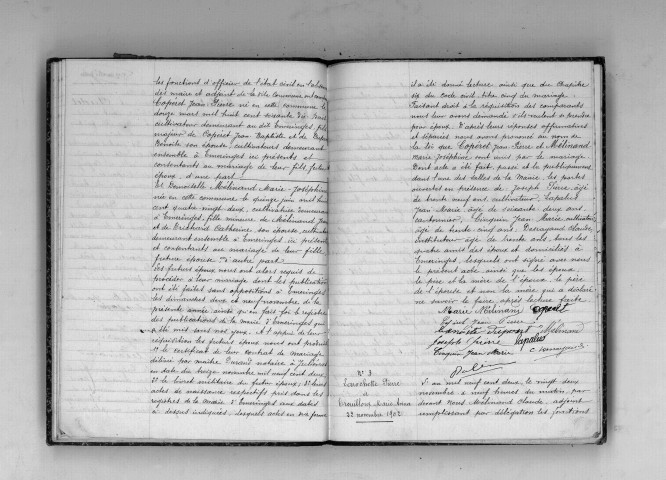 les fonctions d'officier de l'état civil en l'absence
des maire et adjoint de la dite commune, ont comparu
Copéret Jean Pierre né en cette commune le
douze mars mil huit cent soixante dix
cultivateur demeurant au dit Emeringes, fils
majeur de Copéret Jean Baptiste et de
Benoîte son épouse, cultivateurs demeurant
ensemble à Emeringes ici présents et
consentants au mariage de leur fils, futur
époux d'une part
Et Demoiselle Mélinand Marie-Joséphine
née en cette commune le quinze juin mil huit
cent quatre vingt deux, cultivatrice demeurant
à Emeringes, fille mineure de Mélinand Jean
et de Catherine, son épouse, cultivateurs
demeurant ensemble à Emeringes, ici présents
et consentants au mariage de leur fille
future épouse d'autre part
Les futurs époux nous ont alors requis de
procéder à leur mariage dont les publications
ont été faites sans oppositions à Emeringes
les dimanches deux et neuf novembre de la
présente année ainsi qu'en fait foi le registre
des publications de la mairie d'Emeringes qui
a été mis sous nos yeux. Et à l'appui de leur
réquisition les futurs époux nous ont produit
1° le certificat de leur contrat de mariage
délivré par maître Durand notaire à Juliénas
en date du treize novembre mil neuf cent deux
2° le livret militaire du futur époux; 3° leurs
actes de naissance respectifs pris dans les
registres de la mairie d'Emeringes aux dates
ci dessus indiquées, lesquels actes en due forme
il a été donné lecture ainsi que du chapitre
six du code civil titre cinq du mariage.
Faisant droit à la réquisition des comparants
nous leur avons demandé s'ils voulaient se prendre
pour époux. D'après leurs réponses affirmatives
et séparées nous avons prononcé au nom de
la loi que Copéret Jean Pierre et Mélinand
Marie Joséphine sont unis par le mariage.
Dont acte a été fait, passé et lu publiquement
dans l'une des salles de la Mairie, les portes
ouvertes en présence de Joseph Pierre âgé
de trente neuf ans, cultivateur, Lapalus
Jean Marie âgé de soixante-deux ans,
cantonnier, Cinquin Jean Marie cultivateur
âgé de trente cinq ans, Claudius,
instituteur âgé de trente ans tous les
quatre amis des époux et domiciliés à
Emeringes, lesquels ont signé avec nous
le présent acte ainsi que les époux,
le père et la mère de l'époux, le père
de l'épouse et non la mère qui a déclaré
ne savoir le faire, après lecture faite
Marie Mélinand Copéret
Benoîte Mélinand
Joseph Pierre Lapalus
Cinquin Jean Marie
N° 3
Larochette Pierre
et
Trouilloux Marie Anna
22 novembre 1902
L'an mil neuf cent deux, le vingt deux
novembre à neuf heures du matin, par
devant nous Mélinand Claude, adjoint
remplissant par délégation les fonctions